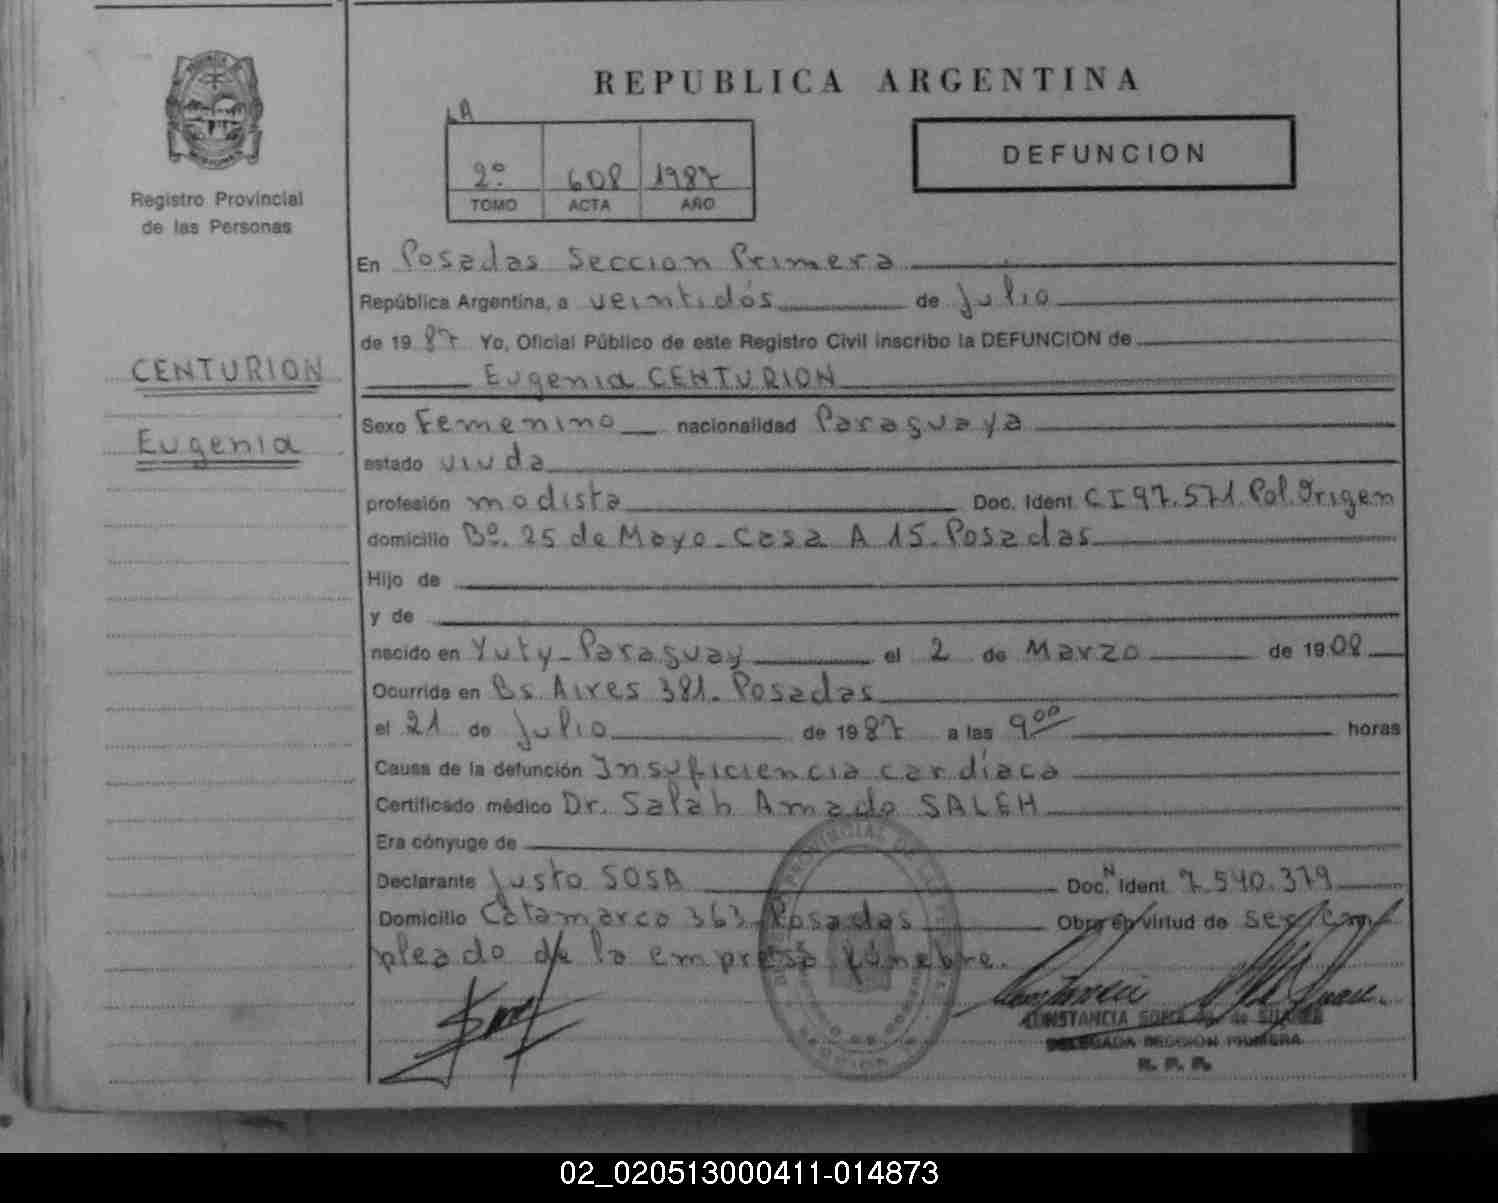 REPUBLICA ARGENTINA
Registro Provincial
de las Personas
LA
2º 608 1987
TOMO ACTA AÑO
DEFUNCION
CENTURION
Eugenia
En Posadas Seccion Primera
República Argentina, a veintidós de Julio
de 1987 Yo, Oficial Público de este Registro Civil inscribo la DEFUNCION de
Eugenia CENTURION
Sexo Femenino nacionalidad Paraguaya
estado viuda
profesión modista Doc. Ident. CI 97.571. Pol. Origen
domicilio Bº. 25 de Mayo - Casa A 15 - Posadas
Hijo de
y de
nacido en Yuty - Paraguay el 2 de Marzo de 1908
Ocurrida en Bs. Aires 381 - Posadas
el 21 de Julio de 1987 a las 9 00 horas
Causa de la defunción Insuficiencia cardíaca
Certificado médico Dr. Salah Amado SALEH
Era cónyuge de
Declarante Justo SOSA Doc. N Ident. 7.540.379
Domicilio Catamarca 363 - Posadas Obra en virtud de ser em
pleado de la empresa fúnebre.
CONSTANCIA de SUAREZ
DELEGADA SECCION PRIMERA
R. P. P.
02_020513000411-014873